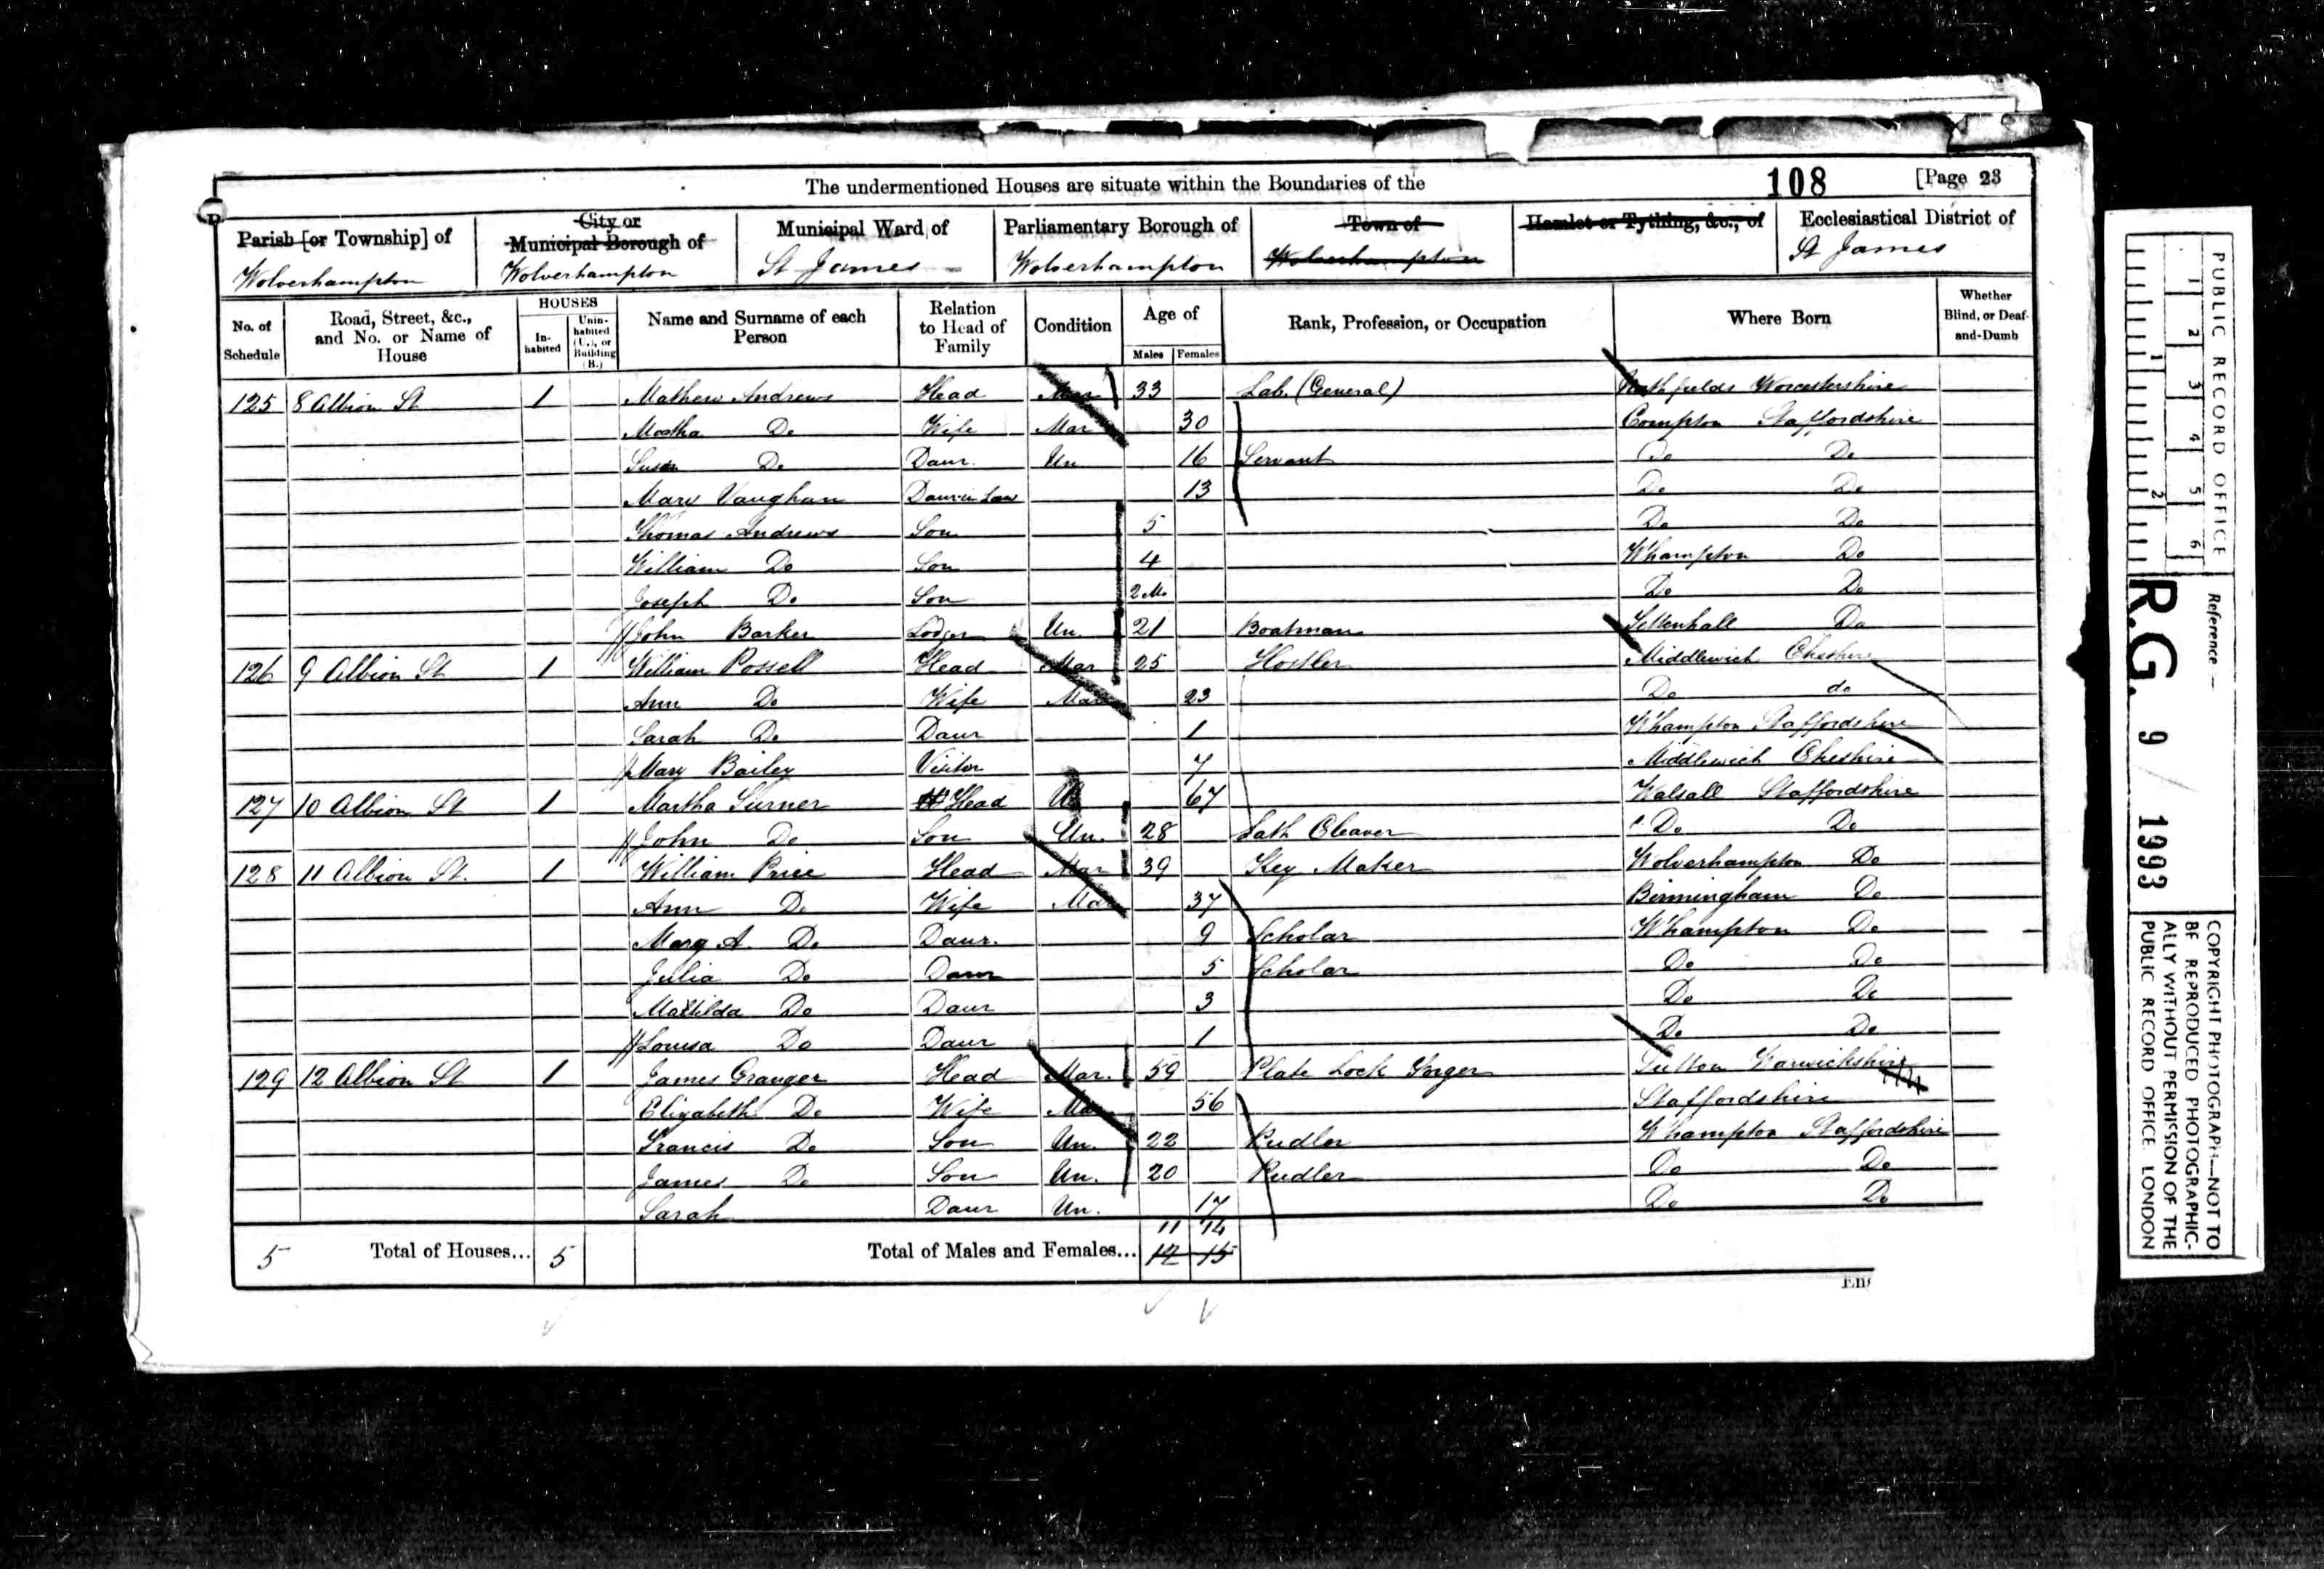 The undermentioned Houses are situate within the Boundaries of the 108 [Page 23
Parish [or Township] of City or Municipal Borough of Municipal Ward of Parliamentary Borough of Town of Hamlet or Tything, &c., of Ecclesiastical District of
Wolverhampton Wolverhampton St James Wolverhampton Wolverhampton St James
No. of Schedule Road, Street, &c., and No. or Name of House HOUSES In-habited Unin-habited (U.), or Building (B.) Name and Surname of each Person Relation to Head of Family Condition Age of Males Females Rank, Profession, or Occupation Where Born Whether Blind, or Deaf-and-Dumb
125 8 Albion St 1 Mathew Andrews Head Mar 33 Lab. (General) Northfields Worcestershire
Martha Do Wife Mar 30 Compton Staffordshire
Susan Do Daur. Un 16 Servant Do Do
Mary Vaughan Daur in Law 13 Do Do
Thomas Andrews Son 5 Do Do
William Do Son 4 Whampton Do
Joseph Do Son 2 Mo Do Do
John Barker Lodger Un. 21 Boatman Tettenhall Do
126 9 Albion St 1 William Possell Head Mar 25 Hostler Middlewich Cheshire
Ann Do Wife Mar 23 Do do
Sarah Do Daur 1 Whampton Staffordshire
Mary Bailey Visitor 7 Middlewich Cheshire
127 10 Albion St 1 Martha Turner Head 67 Walsall Staffordshire
John Do Son Un. 28 Lath Cleaver Do Do
128 11 Albion St. 1 William Price Head Mar 39 Key Maker Wolverhampton Do
Ann Do Wife Mar 37 Birmingham Do
Mary A. Do Daur. 9 Scholar Whampton Do
Julia Do Daur 5 Scholar Do Do
Matilda Do Daur 3 Do Do
Louisa Do Daur 1 Do Do
129 12 Albion St 1 James Granger Head Mar. 59 Plate Lock Forger Sutton Warwickshire
Elizabeth Do Wife Mar 56 Staffordshire
Francis Do Son Un. 22 Pudler Whampton Staffordshire
James Do Son Un. 20 Pudler Do Do
Sarah Daur Un. 17 Do Do
11 14
5 Total of Houses... 5 Total of Males and Females... 12 15
PUBLIC RECORD OFFICE
1 2 3 4 5 6
1 2
Reference —
R.G. 9 / 1993
COPYRIGHT PHOTOGRAPH—NOT TO
BE REPRODUCED PHOTOGRAPHIC-
ALLY WITHOUT PERMISSION OF THE
PUBLIC RECORD OFFICE, LONDON